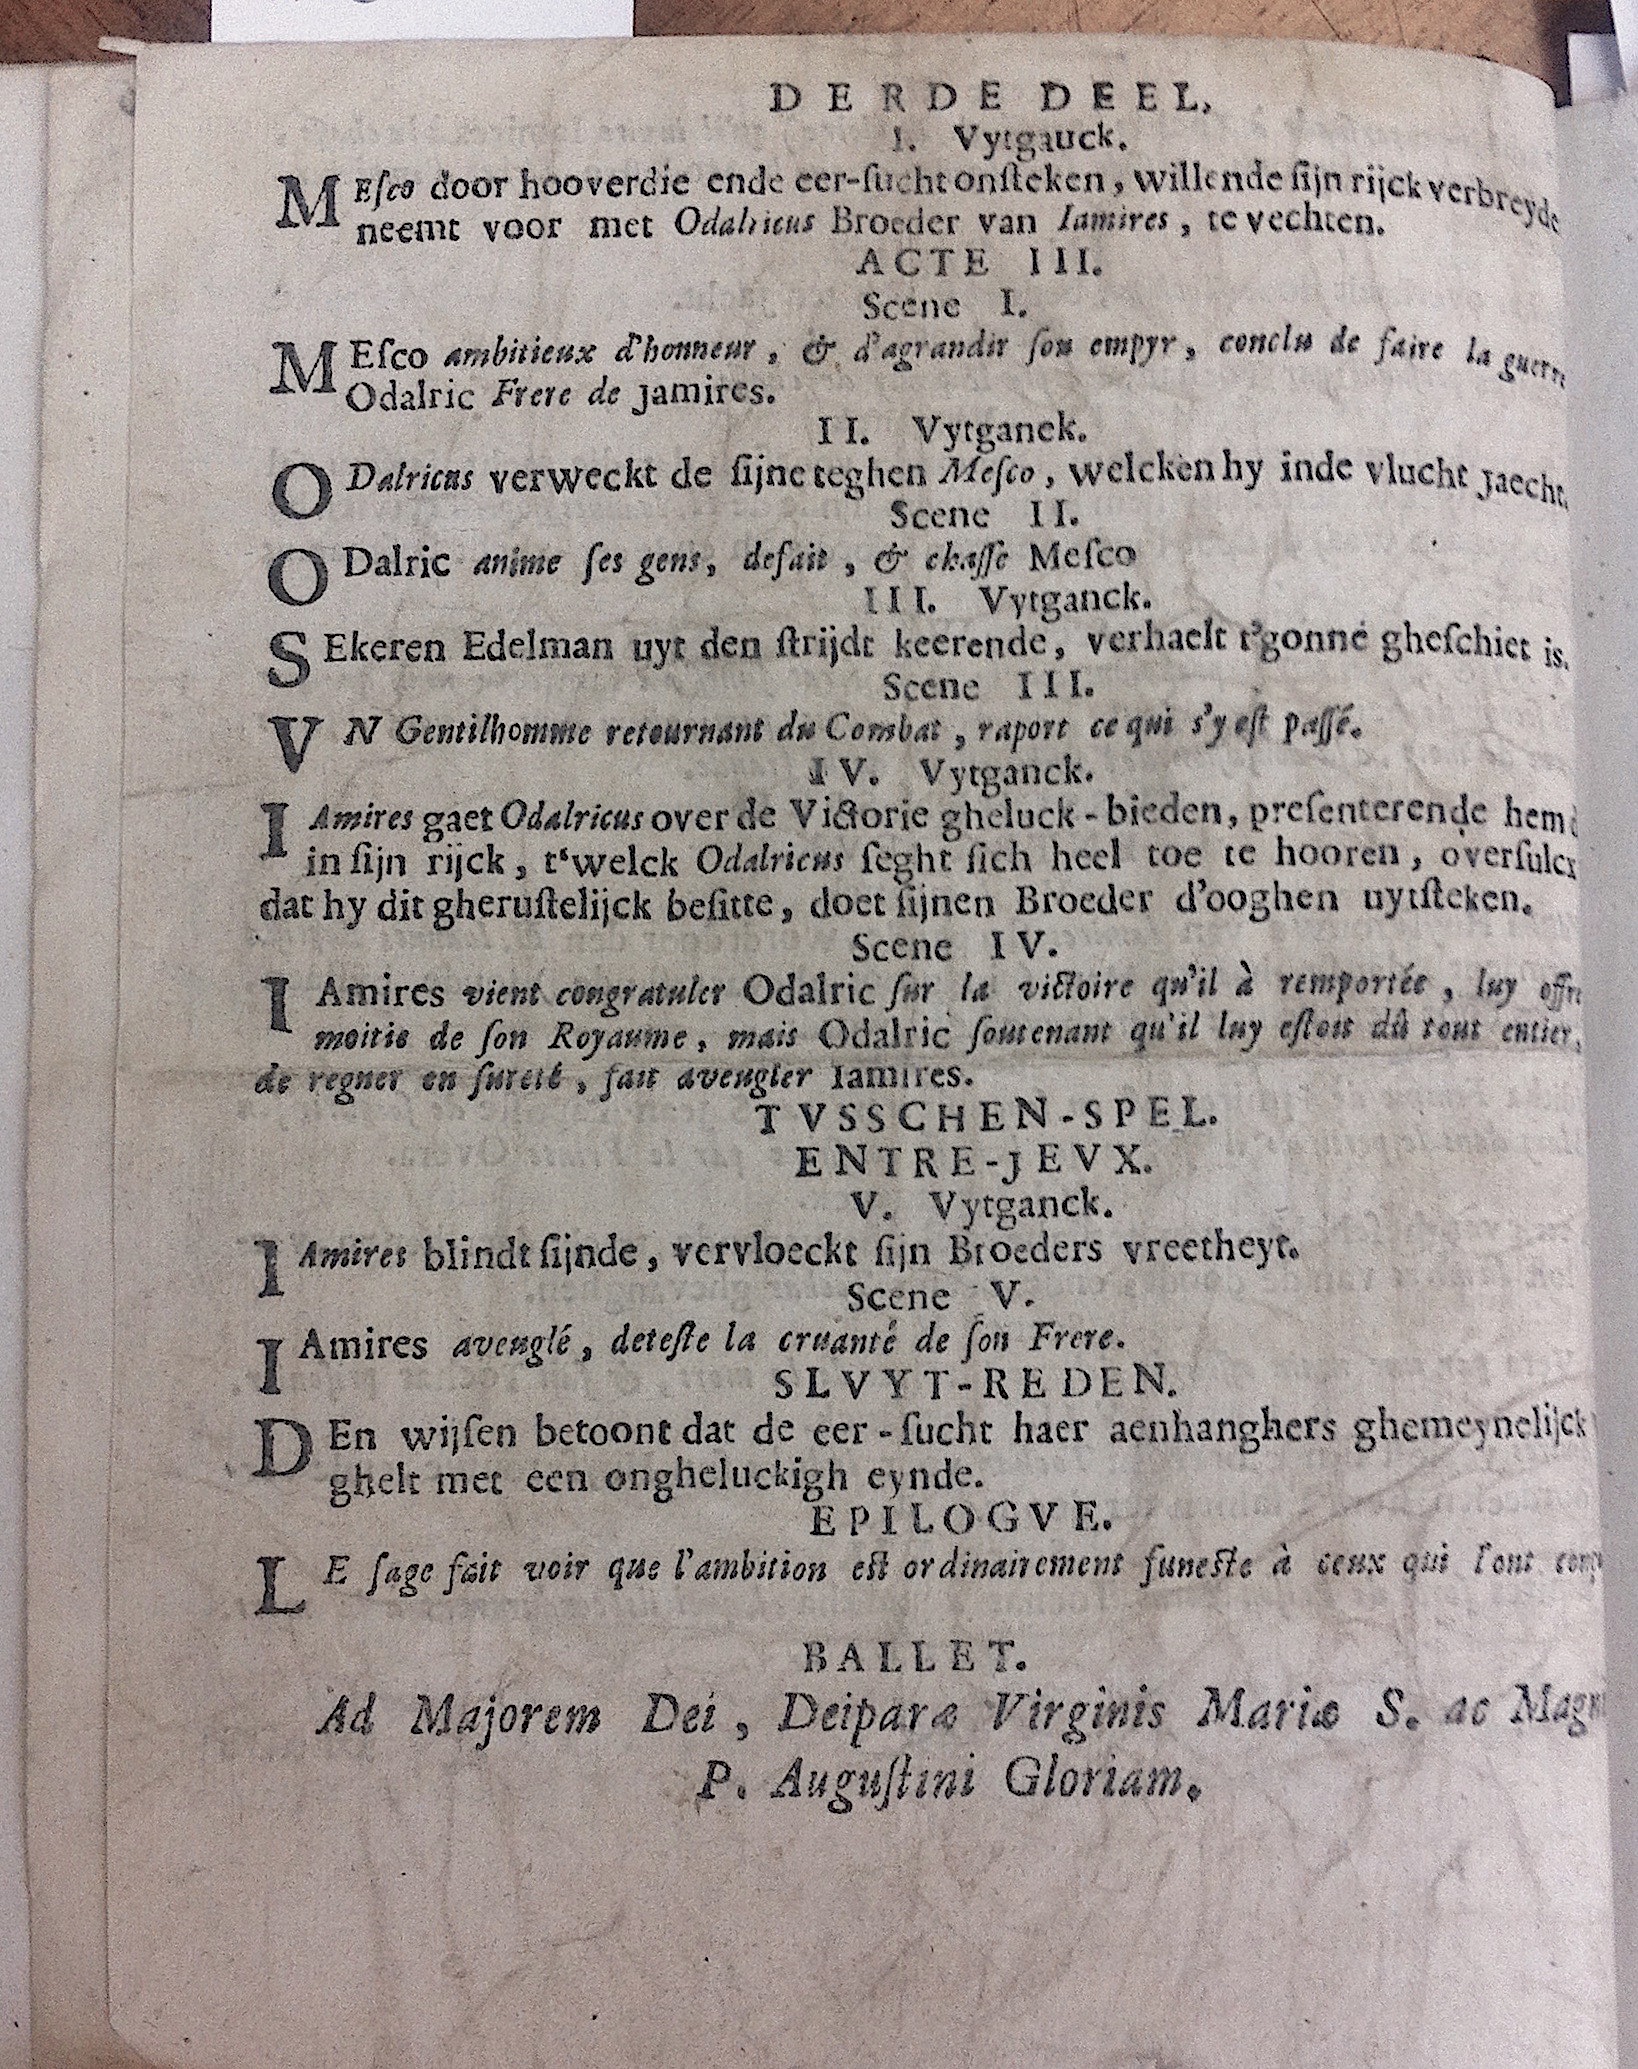 DERDE DEEL.
I. Vytgauck.
MEſco door hooverdie ende eer-ſucht onſteken, willende ſijn rijck verbreyde
neemt voor met Odalricus Broeder van Iamires, te vechten.
ACTE III.
Scene I.
MEſco ambitieux d'honneur, & d'agrandir ſon empyr, conclu de faire la guerre
Odalric Frere de Jamires.
II. Vytganck.
ODalricus verweckt de ſijne teghen Meſco, welcken hy inde vlucht jaecht.
Scene II.
ODalric anime ſes gens, defait, & chaſſe Meſco
III. Vytganck.
SEkeren Edelman uyt den ſtrijdt keerende, verhaelt t'gonne gheſchiet is.
Scene III.
VN Gentilhomme retournant du Combat, raport ce qui s'y eſt paſſé.
IV. Vytganck.
IAmires gaet Odalricus over de Victorie gheluck-bieden, preſenterende hem
in ſijn rijck, t‘welck Odalricus ſeght ſich heel toe te hooren, overſulcx
dat hy dit gheruſtelijck beſitte, doet ſijnen Broeder d'ooghen uytſteken.
Scene IV.
IAmires vient congratuler Odalric ſur la victoire qu'il à remportée, luy offre
moitie de ſon Royaume, mais Odalric ſoutenant qu'il luy eſtoit dû tout entier,
de regner en ſureté, fait aveugler Iamires.
TVSSCHEN-SPEL.
ENTRE-JEVX.
V. Vytganck.
IAmires blindt ſijnde, vervloeckt ſijn Broeders vreetheyt.
Scene V.
IAmires aveuglé, deteſte la cruanté de ſon Frere.
SLVYT-REDEN.
DEn wijſen betoont dat de eer-ſucht haer aenhanghers ghemeynelijck
ghelt met een ongheluckigh eynde.
EPILOGVE.
LE ſage fait voir que l'ambition est ordinairement funeste à ceux qui l'ont
BALLET.
Ad Majorem Dei, Deiparæ Virginis Mariæ S. ac Magn
P. Auguſtini Gloriam.